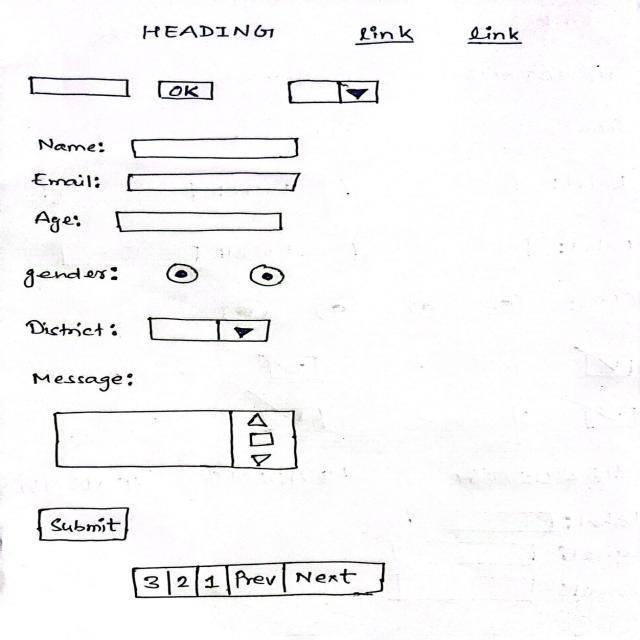 HEADING link link
OK
Name:
Email:
Age:
gender:
District:
Message:
Submit
3 2 1 Prev Next